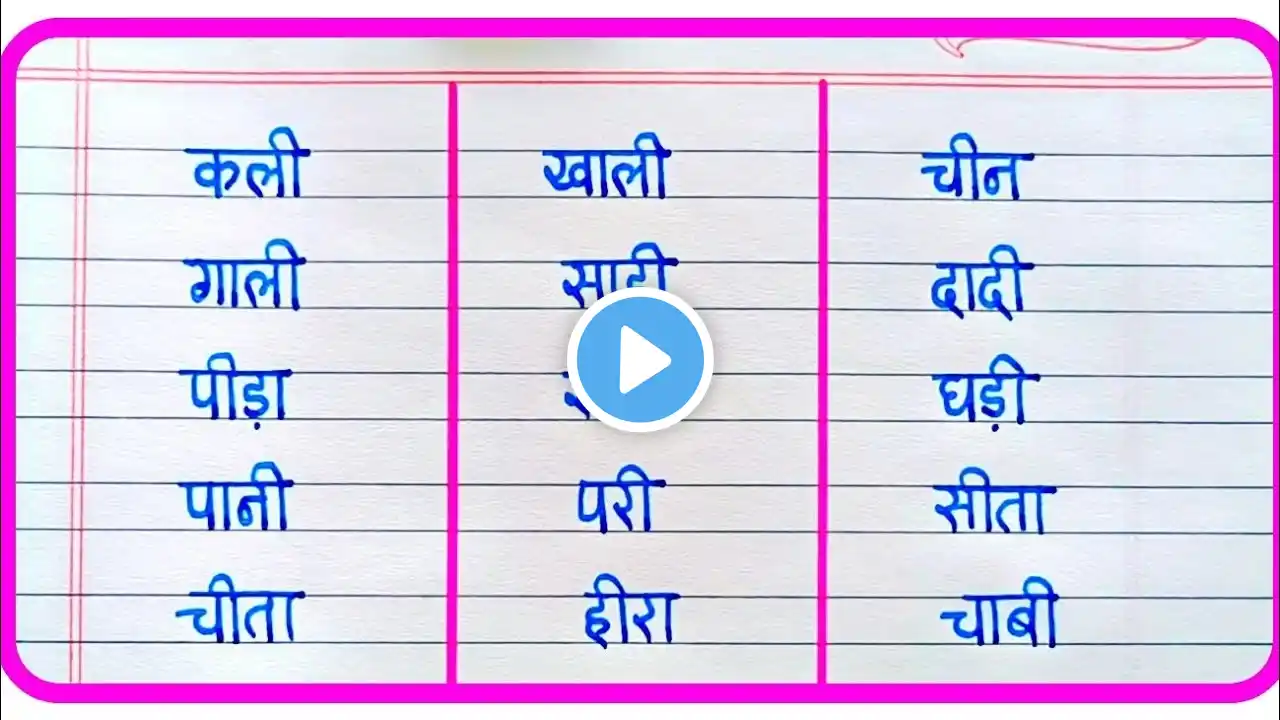 कली खाली चीन
गाली दादी
पीड़ा घड़ी
पानी परी सीता
चीता हीरा चाबी